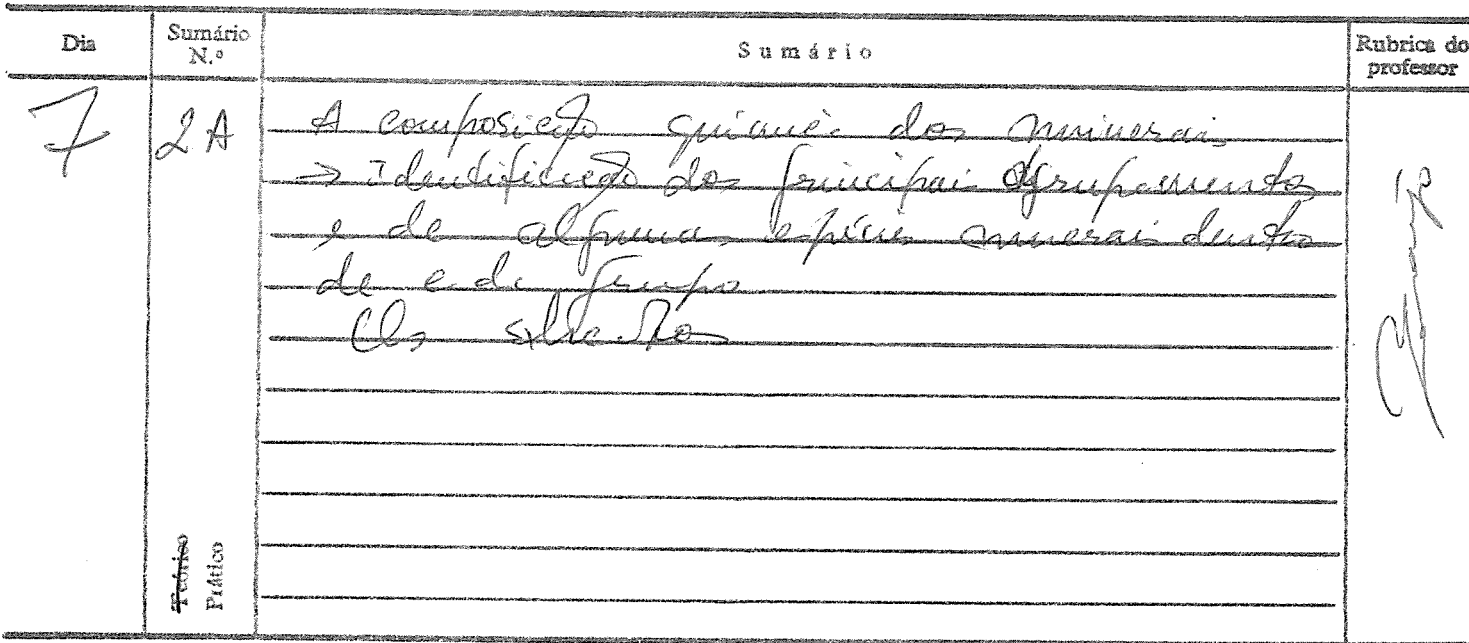 Dia
Sumário N.º
Sumário
Rubrica do professor
7
2A
A composição química dos minerais
→ Identificação dos principais agrupamentos
e de algumas espécies minerais dentro
de cada grupo
Os silicatos
Teórico
Prático